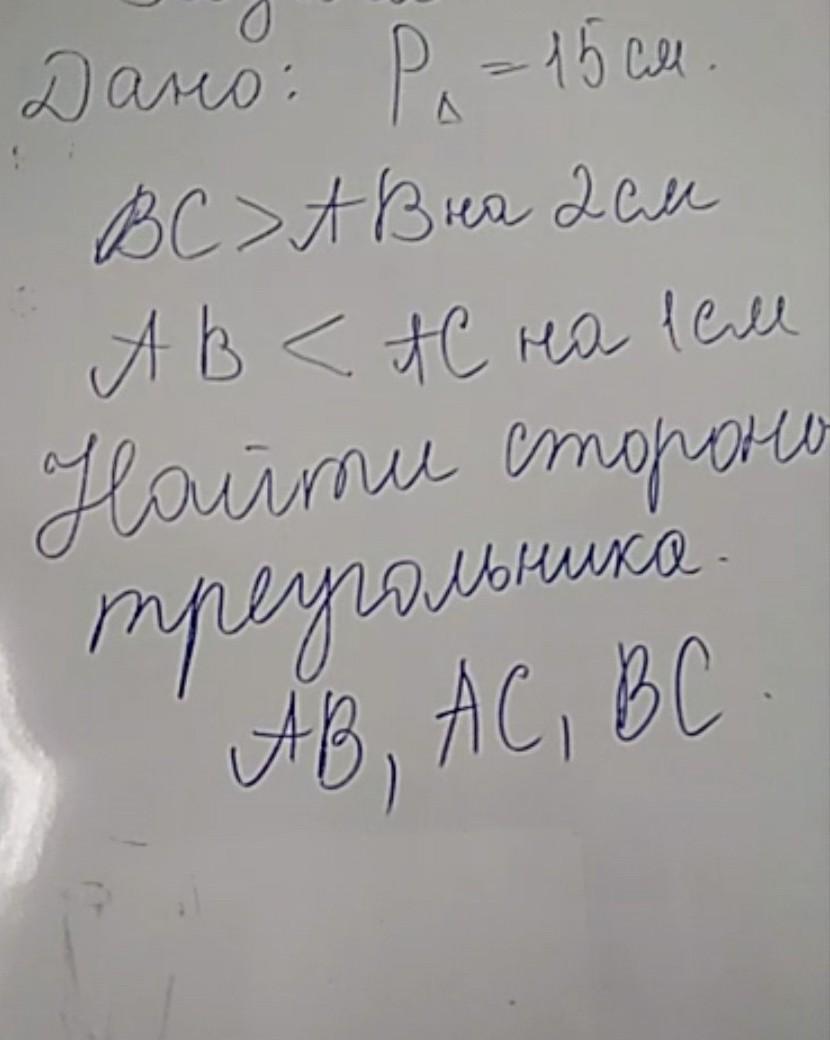 Дано: P△ = 15 см.
BC > AB на 2 см
AB < AC на 1 см
Найти стороны
треугольника.
AB, AC, BC.